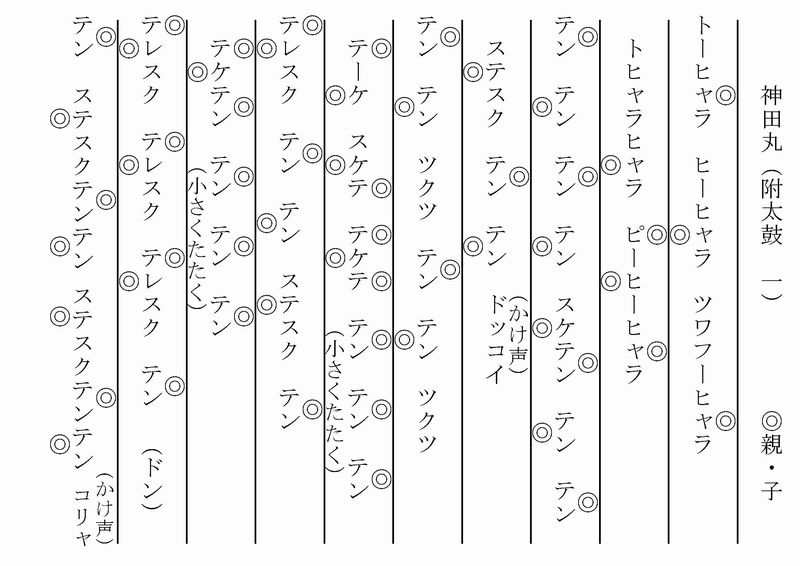 神田丸（附太鼓　一）　◎親・子
トーヒャラ　ヒーヒャラ　ツワフーヒャラ
トヒャラヒャラ　ピーヒーヒャラ
テン　テン　テン　テン　スケテン　テン　テン
（かけ声）
ステスク　テン　テン　ドッコイ
テン　テン　ツクツ　テン　テン　ツクツ
テーケ　スケテ　テケテ　テン　テン　テン
（小さくたたく）
テレスク　テン　テン　ステスク　テン
テケテン　テン　テン　テン
（小さくたたく）
テレスク　テレスク　テレスク　テン　（ドン）
（かけ声）
テン　ステスクテンテン　ステスクテンテン　コリャ